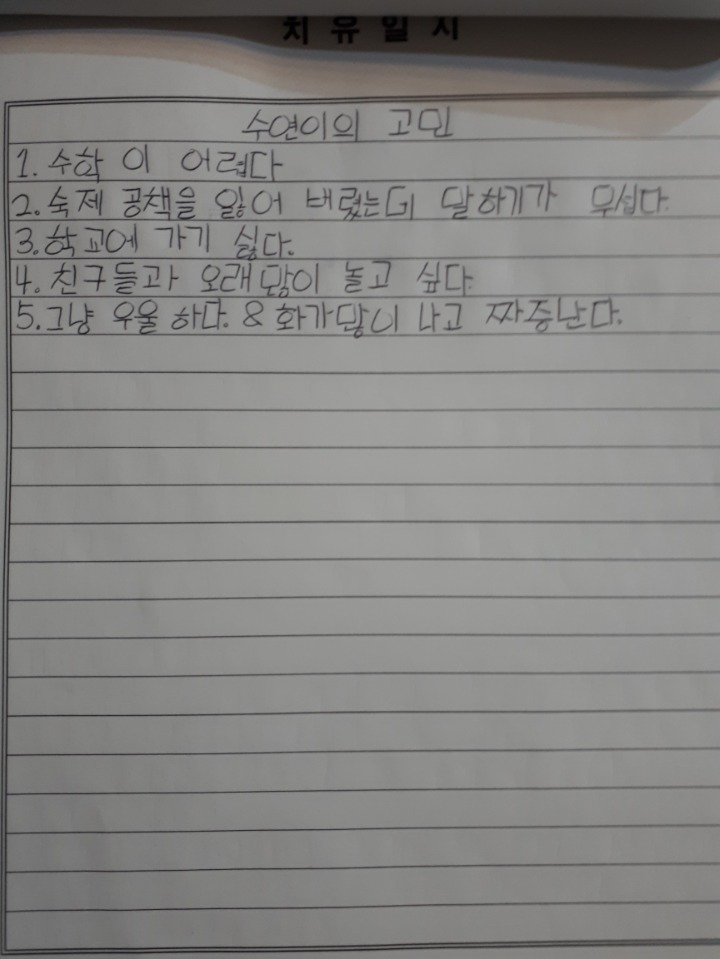 치유일지
수연이의 고민
1. 수학이 어렵다
2. 숙제 공책을 잃어 버렸는데 말하기가 무섭다.
3. 학교에 가기 싫다.
4. 친구들과 오래 많이 놀고 싶다.
5. 그냥 우울 하다. & 화가많이 나고 짜증난다.